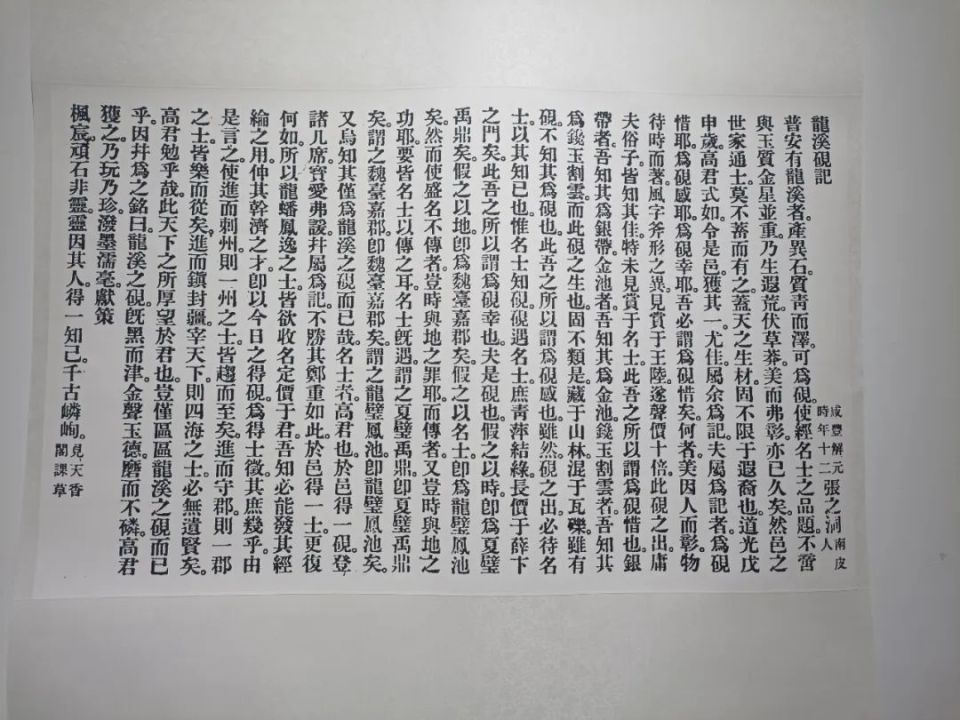 龍溪硯記
咸豐解元張之洞南皮人
時年十二
普安有龍溪者。產異石質青而澤。可為硯。使經名士之品題。不啻
與玉質金星並重。乃生遐荒伏草莽。美而弗彰。亦已久矣。然邑之
世家通士。莫不蓄而有之。蓋天之生材。固不限于遐裔也。道光戊
申歲。高君式如。令是邑。獲其一。尤佳。屬余為記。夫屬為記者。為硯
惜耶。為硯感耶。為硯幸耶。吾必謂為硯惜矣。何者。美因人而彰。物
待時而著。風字斧形之異。見賞于王陸。遂聲價十倍。此硯之出。庸
夫俗子。皆知其佳。特未見賞于名士。此吾之所以謂為硯惜也。銀
帶者。吾知其為銀帶。金池者。吾知其為金池。鏤玉割雲者。吾知其
為鏤玉割雲。而此硯之生也。固不類是。藏于山林。混于瓦礫。雖有
硯。不知其為硯也。此吾之所以謂為硯感也。雖然。硯之出。必待名
士。以其知已也。惟名士知硯。硯遇名士。庶青萍結綠。長價于薛卞
之門矣。此吾之所以謂為硯幸也。夫是硯也。假之以時。卽為夏璧
禹鼎矣。假之以地。卽為魏臺嘉郡矣。假之以名士。卽為龍璧鳳池
矣。然而使盛名不傳者。豈時與地之罪耶。而傳者。又豈時與地之
功耶。要皆名士以傳之耳。名士旣遇。謂之夏璧禹鼎。卽夏璧禹鼎
矣。謂之魏臺嘉郡。卽魏臺嘉郡矣。謂之龍璧鳳池。卽龍璧鳳池矣。
又烏知其僅為龍溪之硯而已哉。名士者。高君也。於邑得一硯。登
諸几席。寶愛弗諼。幷屬為記。不勝其鄭重如此。於邑得一士。更復
何如。所以龍蟠鳳逸之士。皆欲收名定價于君。吾知必能發其經
綸之用。伸其幹濟之才。卽以今日之得硯。為得士徵。其庶幾乎。由
是言之。使進而刺州。則一州之士。皆趨而至矣。進而守郡。則一郡
之士。皆樂而從矣。進而鎮封疆。宰天下。則四海之士。必無遺賢矣。
高君勉乎哉。此天下之所厚望於君也。豈僅區區龍溪之硯而已
乎。因幷為之銘曰。龍溪之硯。旣黑而津。金聲玉德。磨而不磷。高君
獲之。乃玩乃珍。潑墨濡毫。獻策
楓宸。頑石非靈。靈因其人。得一知己。千古嶙峋。見天香
閣課草